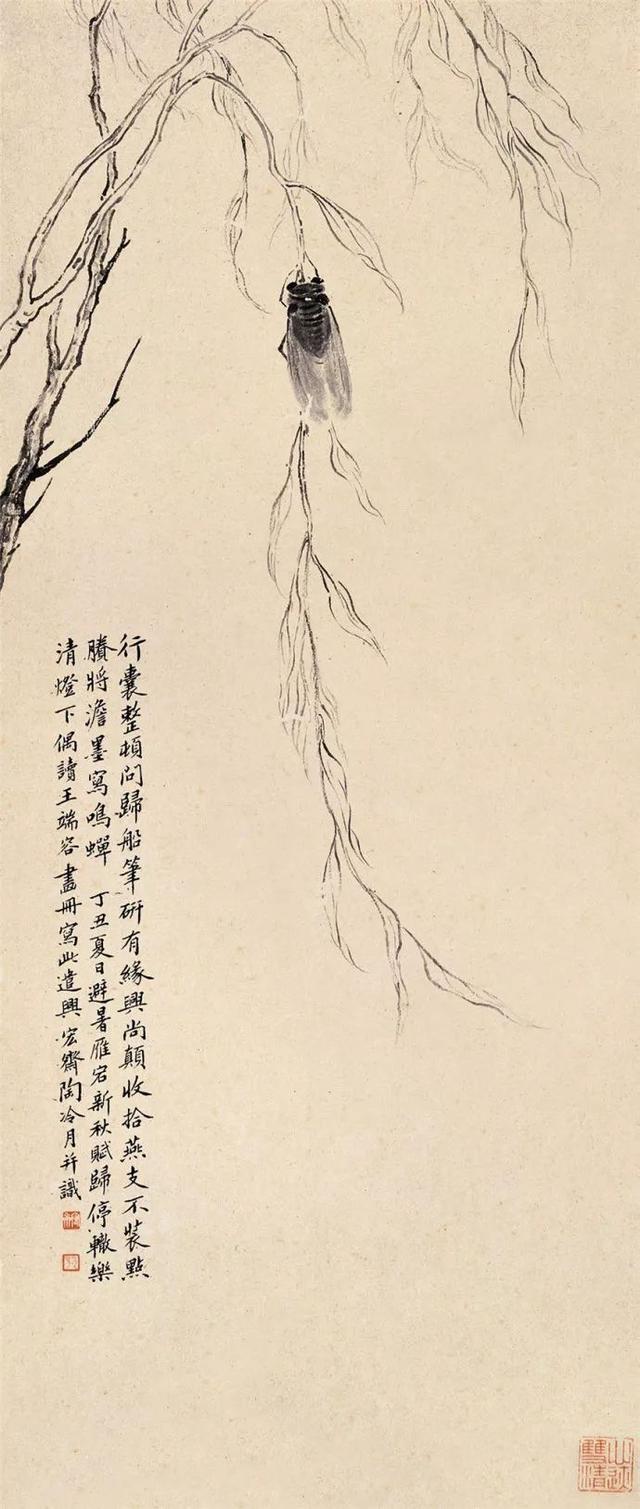 行囊整頓問歸船筆研有緣興尚顛收拾燕支不裝點
賸將澹墨寫鳴蟬 丁丑夏日避暑雁宕新秋賦歸停轍樂
清燈下偶讀王端容畫冊寫此遣興宏齋陶冷月并識